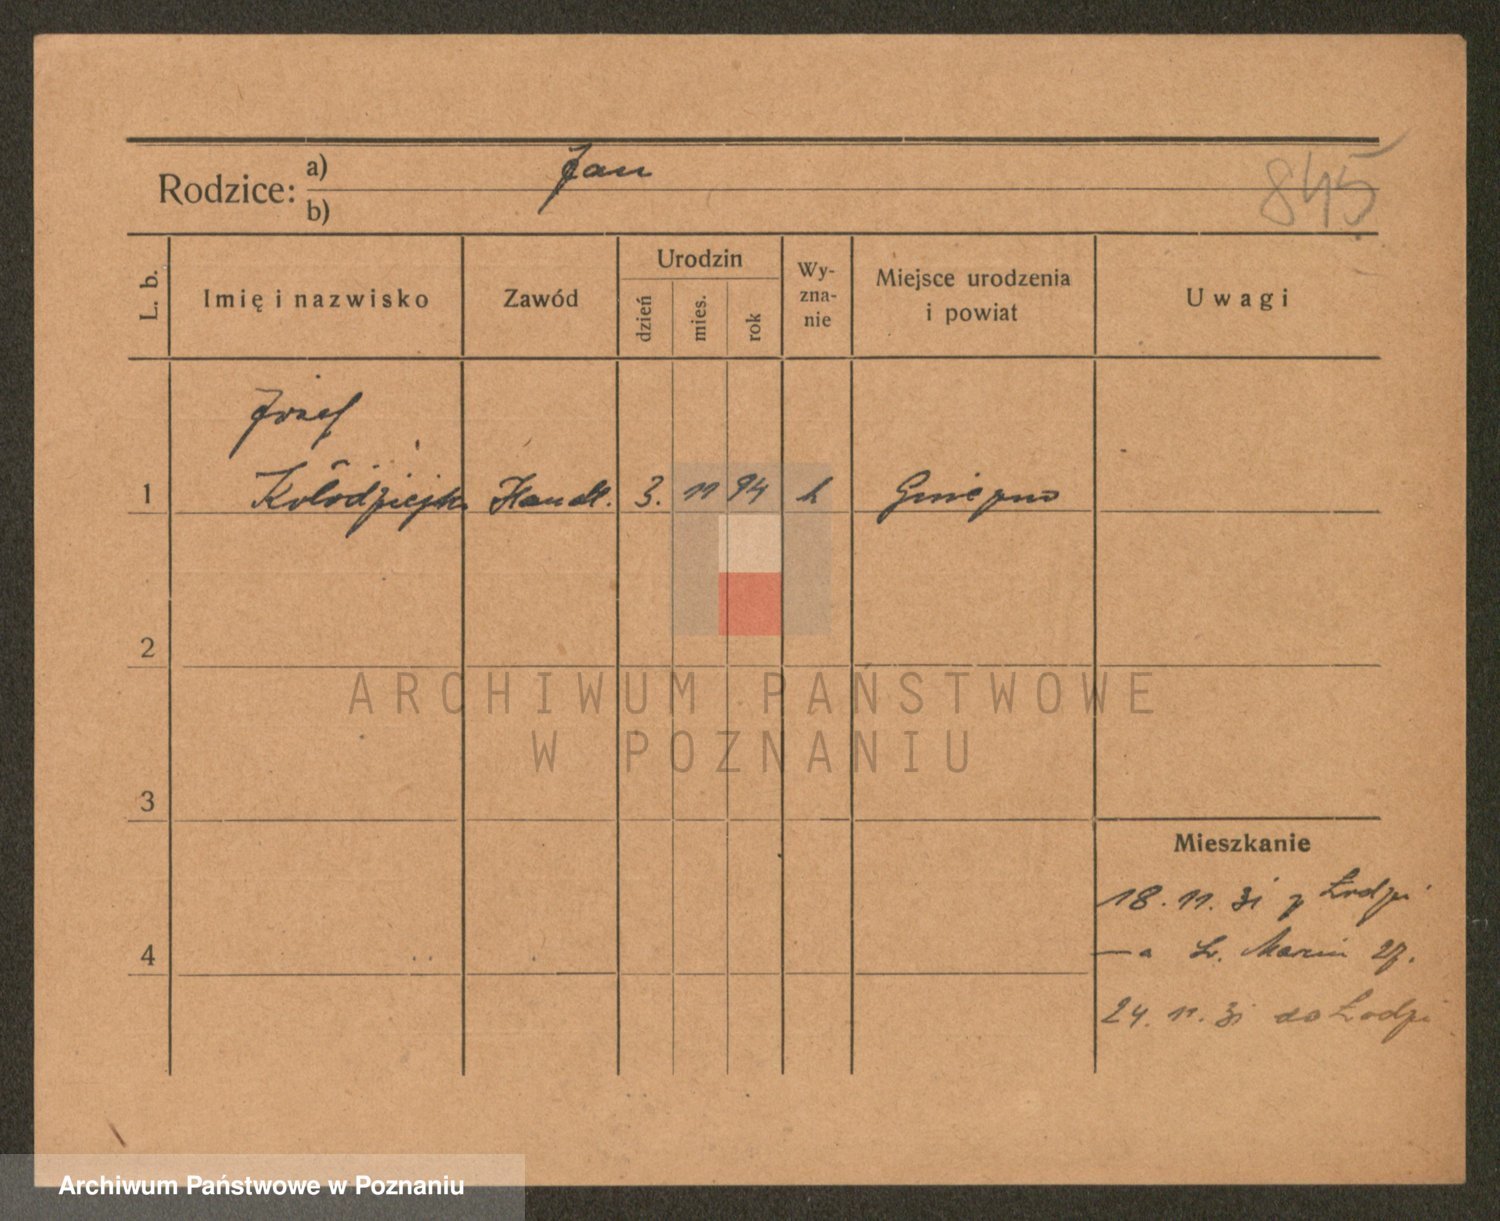 Rodzice: a) Jan
b)
845
L. b. Imię i nazwisko Zawód Urodzin dzień mies. rok Wy-zna-nie Miejsce urodzenia i powiat Uwagi
Józef
1 Kołodziejk Handl. 3. 11 94 k Gniezno
2
ARCHIWUM PAŃSTWOWE
W POZNANIU
3
Mieszkanie
18. 11. 31 z Łodzi
4
— a Św. Marcin 27.
24. 11. 31 do Łodzi
Archiwum Państwowe w Poznaniu